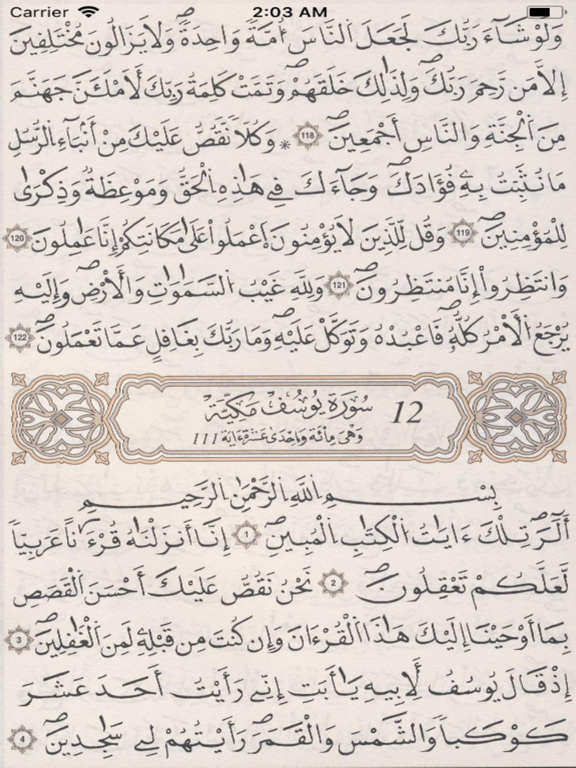 Carrier 2:03 AM
وَلَوْ شَآءَ رَبُّكَ لَجَعَلَ اَ۬لنَّاسَ أُمَّةٗ وَٰحِدَةٗ وَلَا يَزَالُونَ مُخْتَلِفِينَ
إِلَّا مَن رَّحِمَ رَبُّكَۖ وَلِذَٰلِكَ خَلَقَهُمْۖ وَتَمَّتْ كَلِمَةُ رَبِّكَ لَأَمْلَأَنَّ جَهَنَّمَ
مِنَ اَ۬لْجِنَّةِ وَالنَّاسِ أَجْمَعِينَۖ 118 * وَكُلّاٗ نَّقُصُّ عَلَيْكَ مِنْ أَنۢبَآءِ اِ۬لرُّسُلِ
مَا نُثَبِّتُ بِهِۦ فُؤَادَكَۖ وَجَآءَكَ فِے هَٰذِهِ اِ۬لْحَقُّ وَمَوْعِظَةٞ وَذِكْر۪يٰ
لِلْمُؤْمِنِينَۖ 119 وَقُل لِّلذِينَ لَا يُؤْمِنُونَ اَ۪عْمَلُواْ عَلَىٰ مَكَانَتِكُمُۥٓ إِنَّا عَٰمِلُونَ 120
وَانتَظِرُوٓاْ إِنَّا مُنتَظِرُونَۖ 121 وَلِلهِ غَيْبُ اُ۬لسَّمَٰوَٰتِ وَالْأَرْضِۖ وَإِلَيْهِ
يُرْجَعُ اُ۬لْأَمْرُ كُلُّهُۥۖ فَاعْبُدْهُ وَتَوَكَّلْ عَلَيْهِۖ وَمَا رَبُّكَ بِغَٰفِلٍ عَمَّا تَعْمَلُونَۖ 122
سُورَةُ يُوسُفَ مَكِّيَّة 12
وَهْيَ مِائَة وَإِحْدَى عَشْرَةَ ءَايَة 111
بِسْمِ اِ۬للَّهِ اِ۬لرَّحْمَٰنِ اِ۬لرَّحِيمِ
أَلَٓر۪ۖ تِلْكَ ءَايَٰتُ اُ۬لْكِتَٰبِ اِ۬لْمُبِينِۖ 1 إِنَّآ أَنزَلْنَٰهُ قُرْءَٰناً عَرَبِيّاٗ
لَّعَلَّكُمْ تَعْقِلُونَۖ 2 نَحْنُ نَقُصُّ عَلَيْكَ أَحْسَنَ اَ۬لْقَصَصِ
بِمَآ أَوْحَيْنَآ إِلَيْكَ هَٰذَا اَ۬لْقُرْءَانَ وَإِن كُنتَ مِن قَبْلِهِۦ لَمِنَ اَ۬لْغَٰفِلِينَۖ 3
إِذْ قَالَ يُوسُفُ لِأَبِيهِ يَٰٓأَبَتِ إِنِّے رَأَيْتُ أَحَدَ عَشَرَ
كَوْكَباٗ وَالشَّمْسَ وَالْقَمَرَۖ رَأَيْتُهُمْ لِے سَٰجِدِينَۖ 4